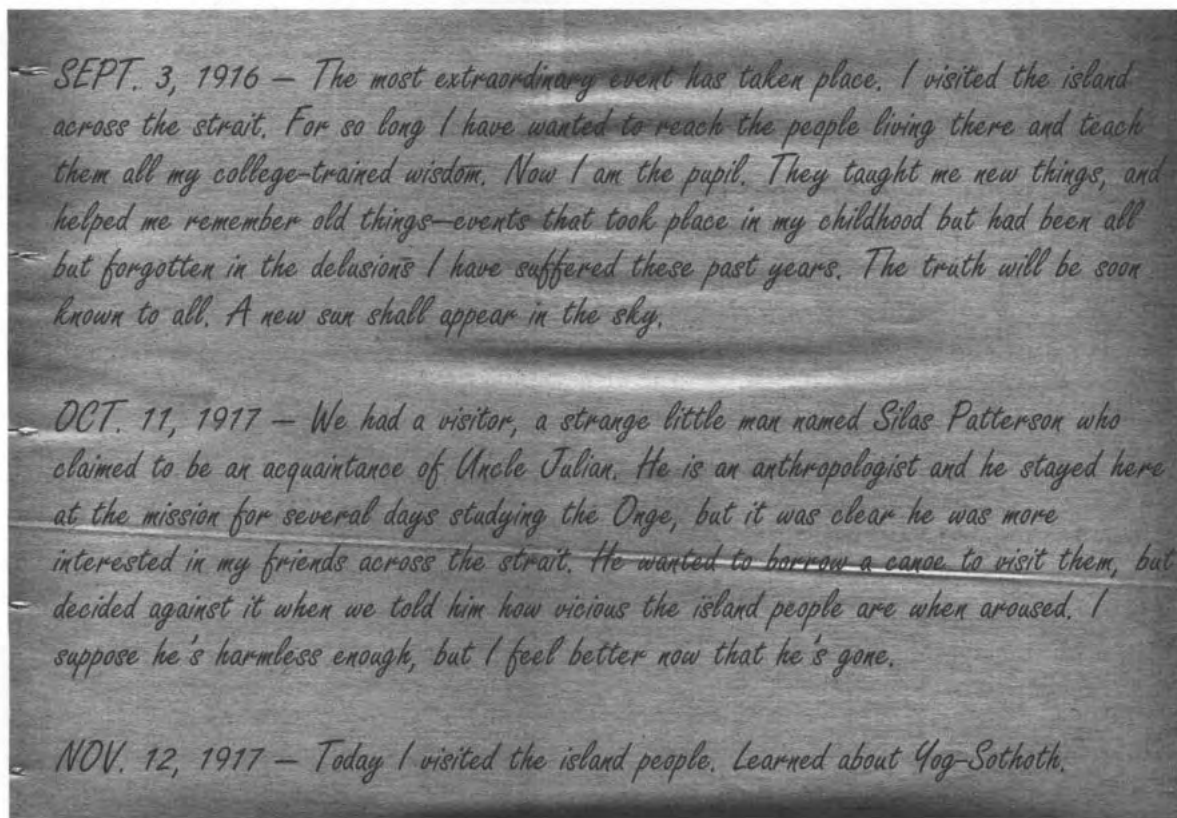 SEPT. 3, 1916 — The most extraordinary event has taken place. I visited the island
across the strait. For so long I have wanted to reach the people living there and teach
them all my college-trained wisdom. Now I am the pupil. They taught me new things, and
helped me remember old things—events that took place in my childhood but had been all
but forgotten in the delusions I have suffered these past years. The truth will be soon
known to all. A new sun shall appear in the sky.
OCT. 11, 1917 — We had a visitor, a strange little man named Silas Patterson who
claimed to be an acquaintance of Uncle Julian. He is an anthropologist and he stayed here
at the mission for several days studying the Onge, but it was clear he was more
interested in my friends across the strait. He wanted to borrow a canoe to visit them, but
decided against it when we told him how vicious the island people are when aroused. I
suppose he's harmless enough, but I feel better now that he's gone.
NOV. 12, 1917 — Today I visited the island people. Learned about Yog-Sothoth.